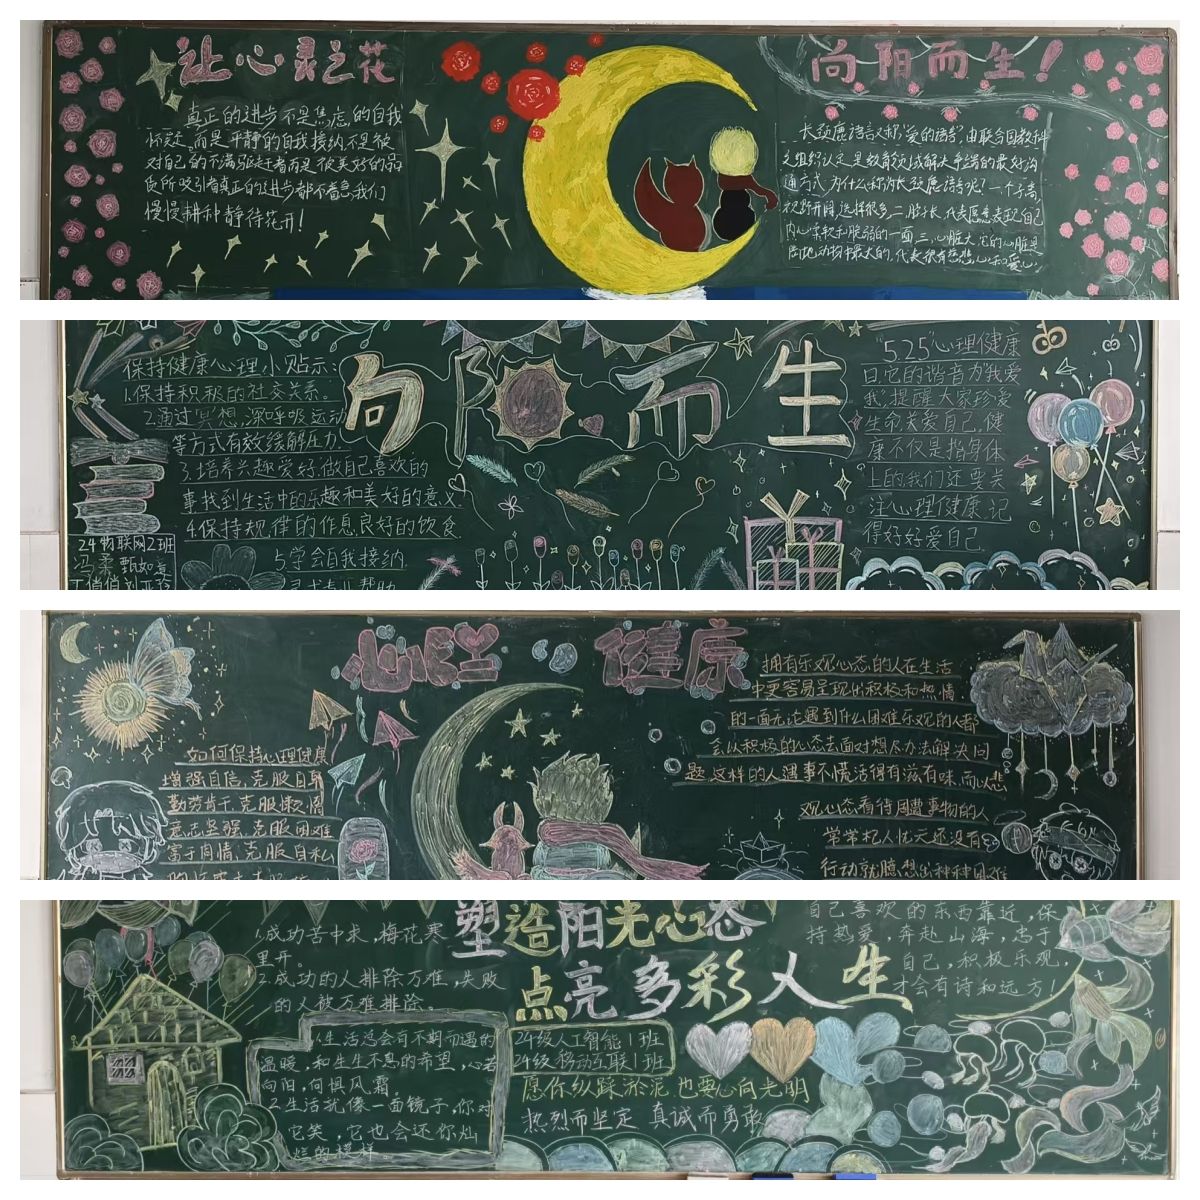 让心灵之花
向阳而生！
真正的进步不是焦虑的自我
标定,而是平静的自我接纳不是被
对自己的不满驱赶着而是被美好的品
质所吸引着真正的进步都不着急,我们
慢慢耕种静待花开！
长颈鹿语言又称"爱的语言",由联合国教科
文组织认定是教育领域解决争端的最好沟
通方式,为什么称为长颈鹿语言呢？一个子高,
视野开阔,选择很多,二.脖子长,代表愿意表现自己
内心柔软和脆弱的一面,三.心脏大,它的心脏是
陆地动物中最大的,代表很有慈悲心和爱心.
向阳而生
保持健康心理小贴示:
1.保持积极的社交关系。
2.通过"冥"想,深呼吸,运动
等方式有效缓解压力
3.培养兴趣爱好,做自己喜欢的
事找到生活中的乐趣和美好的意义
4.保持规律的作息,良好的饮食
5.学会自我接纳
24物联网2班
冯柔 甄如意
"5.25"心理健康
日,它的谐音为"我爱
我"提醒大家珍爱
生命,关爱自己,健
康不仅是指身体
上的我们还要关
注心理健康,记
得好好爱自己
心理健康
如何保持心理健康
增强自信,克服自卑
勤劳肯干,克服懒惰
意志坚强,克服困难
富于同情,克服自私
拥有乐观心态的人在生活
中更容易呈现出积极和热情
的一面无论遇到什么困难乐观的人都
会以积极的心态去面对想尽办法解决问
题,这样的人遇事不慌活得有滋有味,而以悲
观心态看待周遭事物的人
常常杞人忧天还没有
行动就臆想出种种困难
塑造阳光心态
点亮多彩人生
1.成功苦中求,梅花寒
里开。
2.成功的人排除万难,失败
的人被万难排除。
1.生活总会有不期而遇的
温暖,和生生不息的希望,心若
向阳,何惧风霜。
2.生活就像一面镜子,你对
它笑,它也会还你灿
烂的模样。
24级人工智能1班
24级移动互联1班
愿你纵踩淤泥 也要心向光明
热烈而坚定 真诚而勇敢
自己喜欢的东西靠近,保
持热爱,奔赴山海,忠于
自己,积极乐观,
才会有诗和远方！